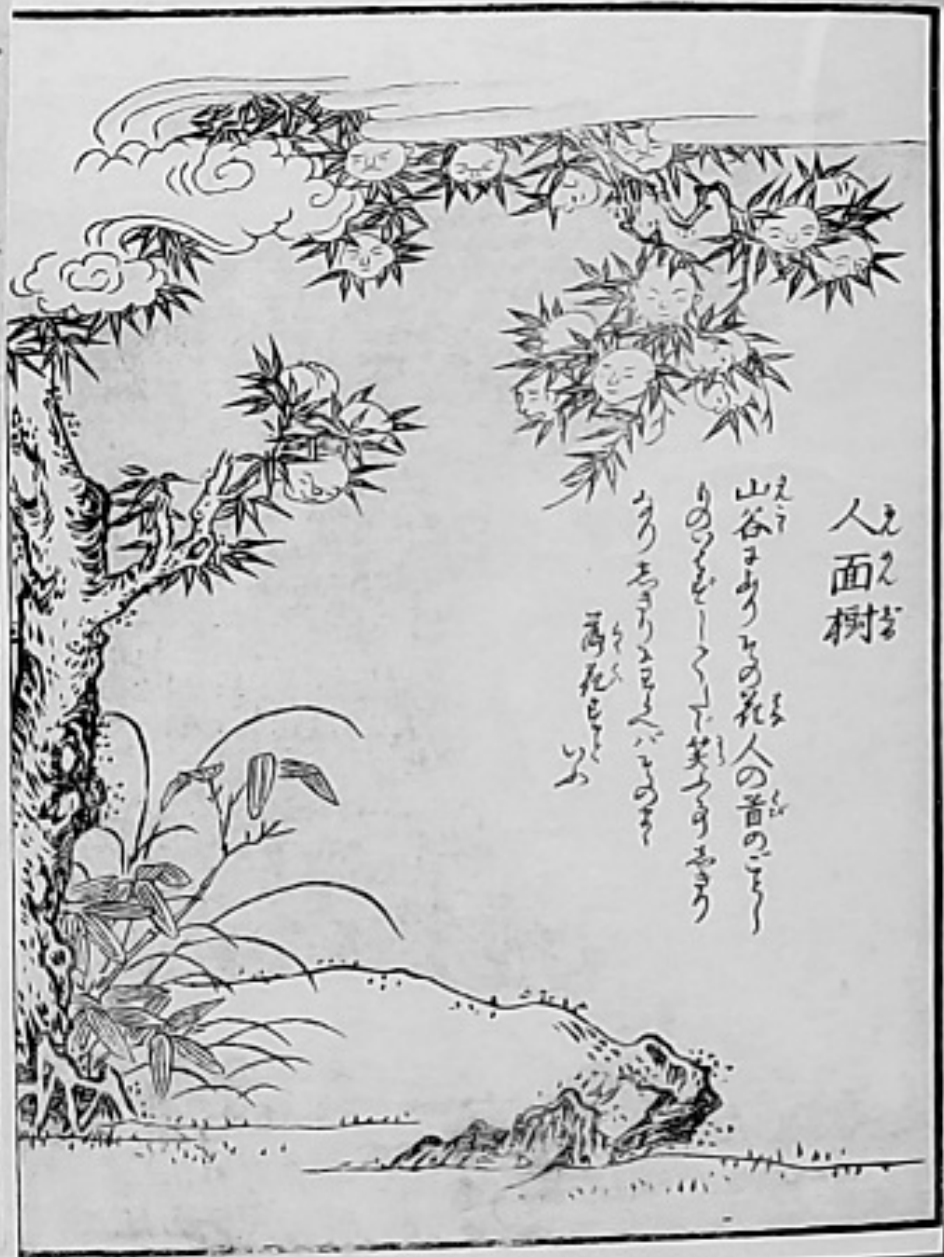 人面樹
山谷にありその花人の首のごとし
ものいはずしてたゞ笑ふ事しきり
なりしきりにわらへバそのまゝ
落花すと
いふ